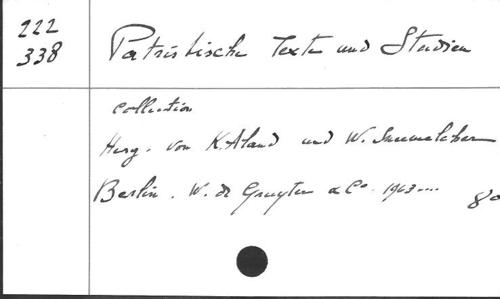 222
338
Patristische Texte und Studien
collection
Herg. von K. Aland und W.
Berlin. W. de Gruyter & Co. 1963....
8o